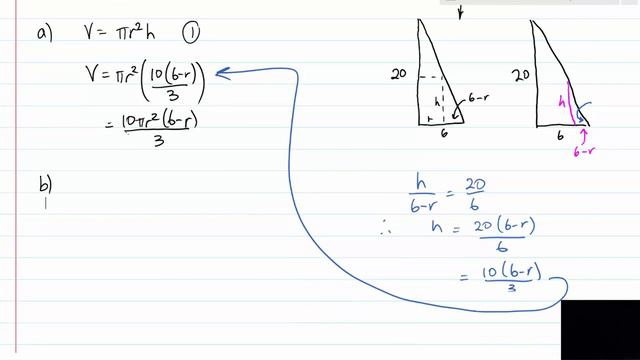 a) V = πr²h ①
V = πr²(10(6-r)/3)
= 10πr²(6-r)/3
b)
20
h
r
6
6-r
20
h
6
6-r
h/6-r = 20/6
∴ h = 20(6-r)/6
= 10(6-r)/3